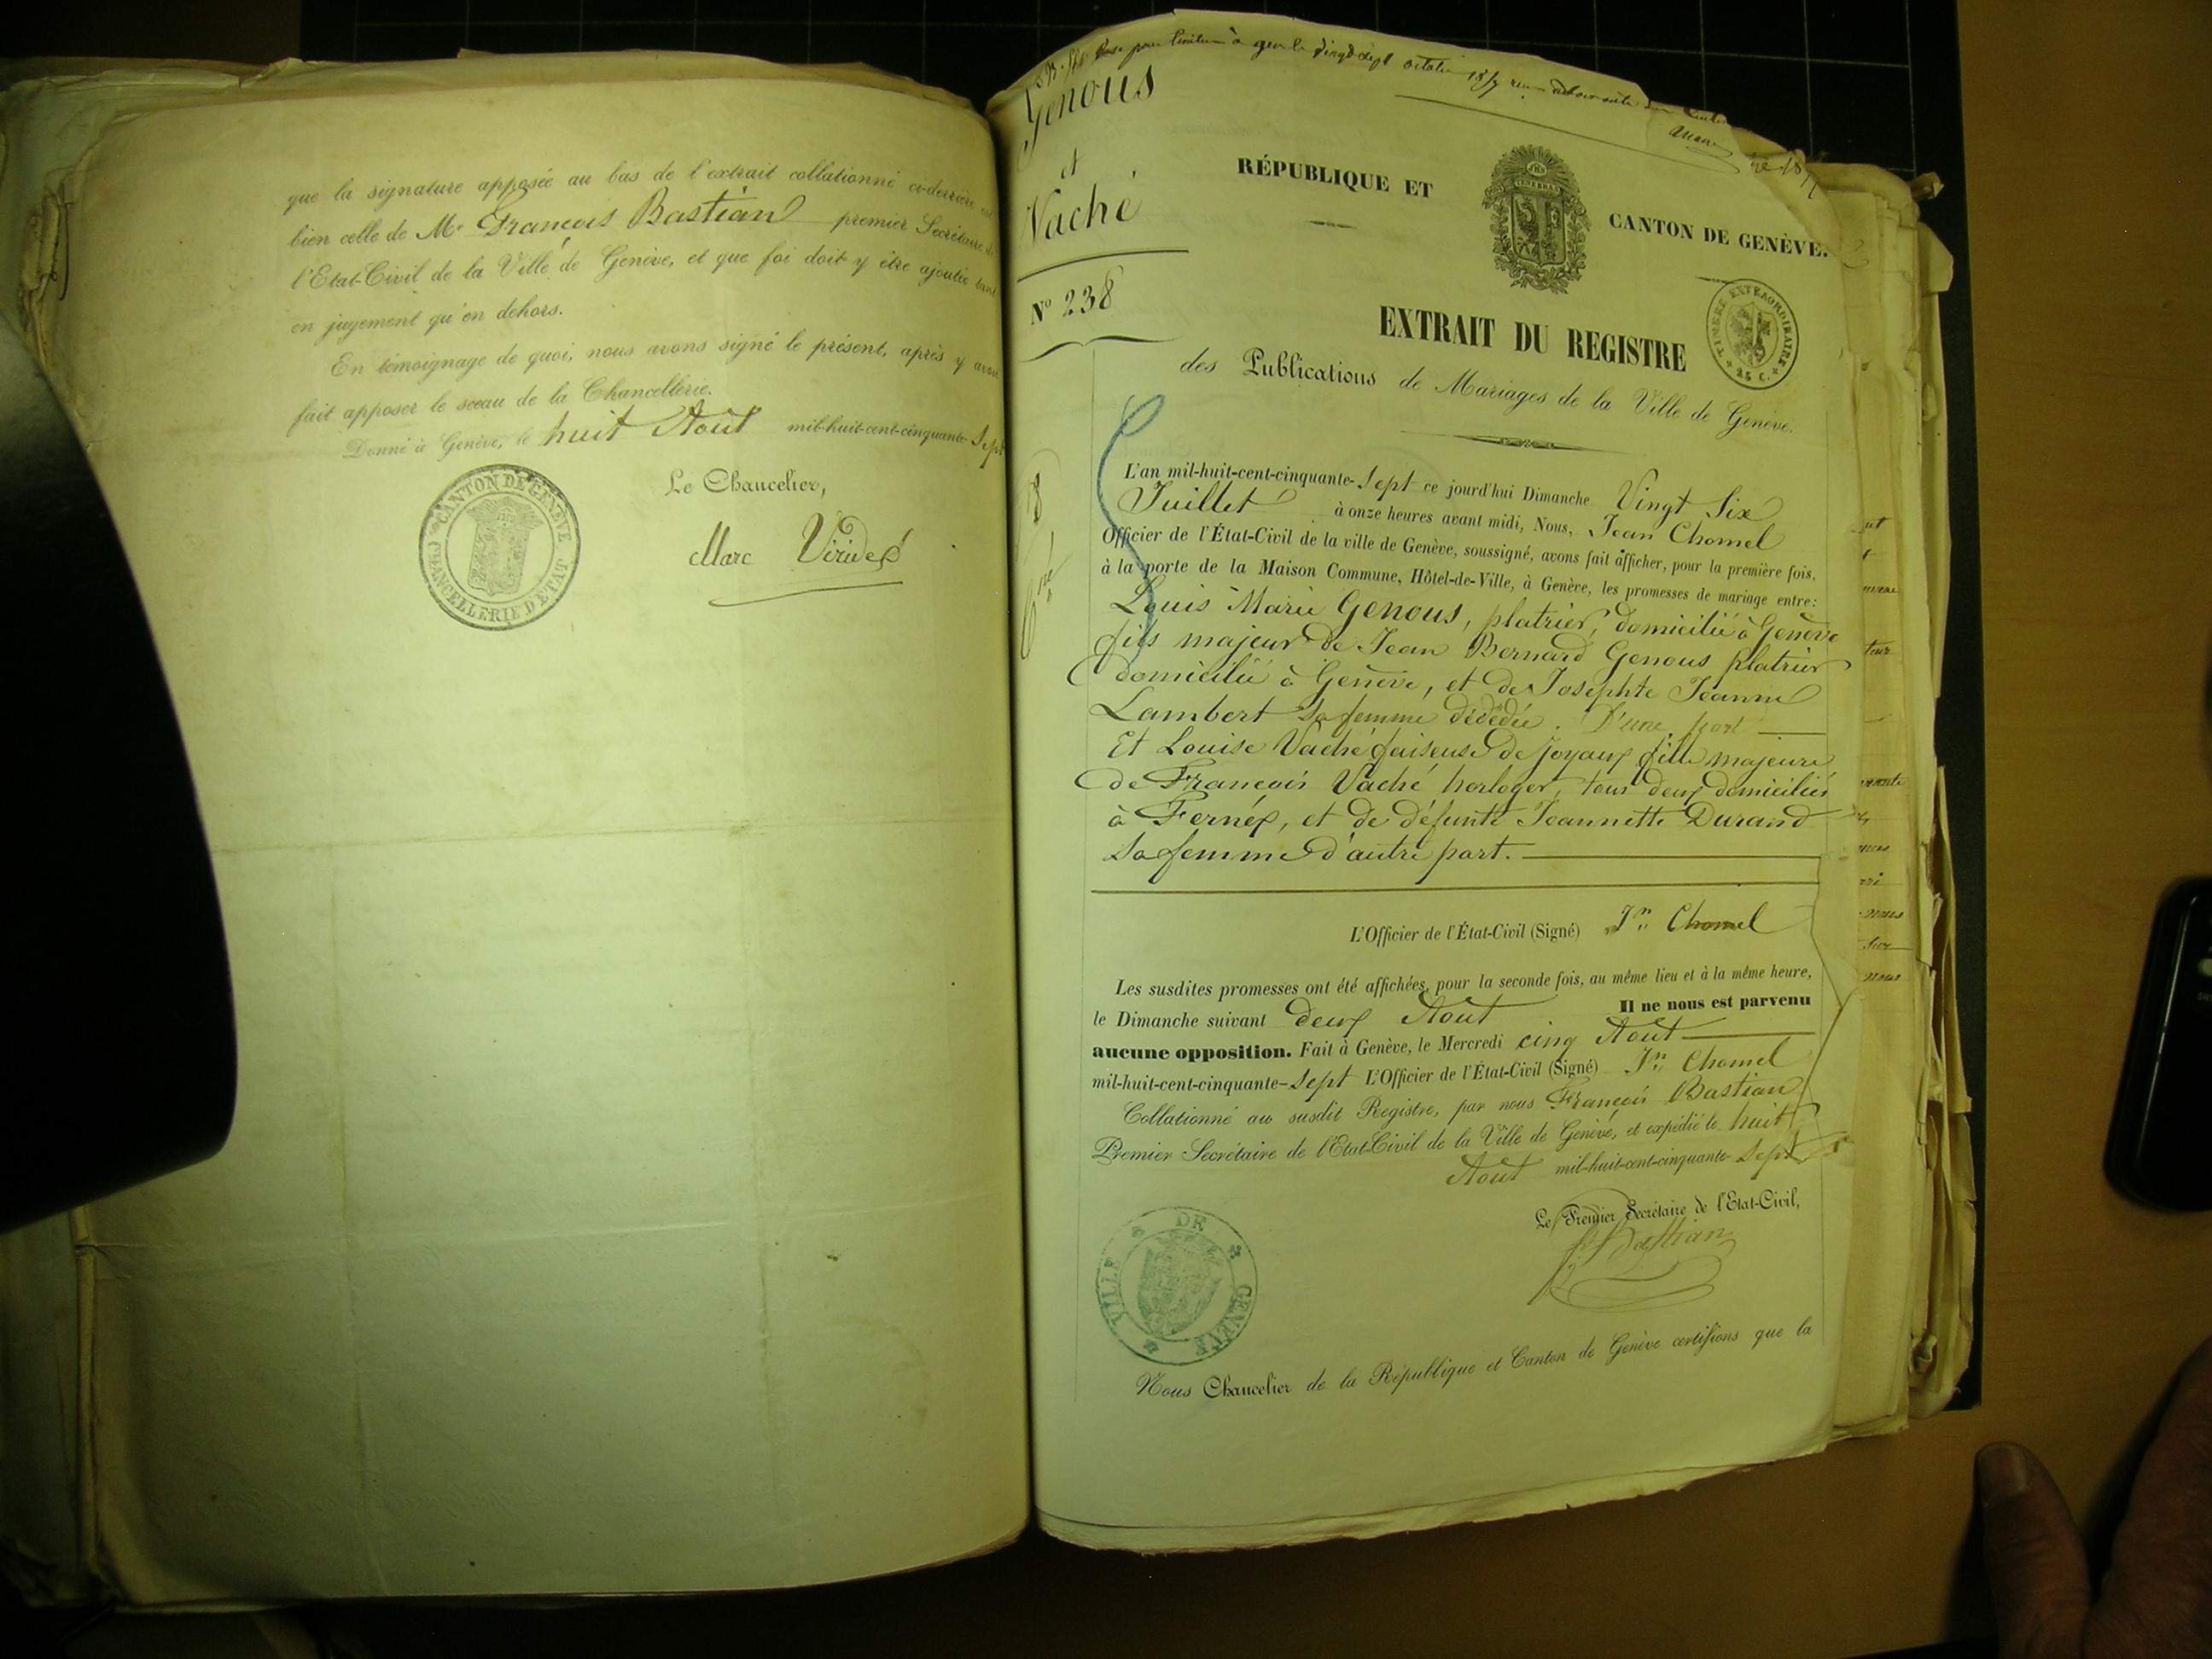 que la signature apposée au bas de l'extrait collationné ci-derrière est
bien celle de Mr François Bastian premier Secrétaire de
l'Etat-Civil de la Ville de Genève, et que foi doit y être ajoutée tant
en jugement qu'en dehors.
En témoignage de quoi, nous avons signé le présent, après y avoir
fait apposer le sceau de la Chancellerie.
Donné à Genève, le huit Août mil-huit-cent-cinquante-Sept
Le Chancelier,
Marc Viridet
CANTON DE GENÈVE
CHANCELLERIE D'ETAT
à Gex le vingt sept octobre
Genous
et
Vaché
No 238
RÉPUBLIQUE ET CANTON DE GENÈVE.
TIMBRE EXTRAORDINAIRE
25 C.
EXTRAIT DU REGISTRE
des Publications de Mariages de la Ville de Genève.
L'an mil-huit-cent-cinquante-Sept ce jourd'hui Dimanche Vingt Six
Juillet à onze heures avant midi, Nous, Jean Chomel
Officier de l'État-Civil de la ville de Genève, soussigné, avons fait afficher, pour la première fois,
à la porte de la Maison Commune, Hôtel-de-Ville, à Genève, les promesses de mariage entre:
Louis Marie Genous, platrier, domicilié à Genève
fils majeur de Jean Bernard Genous platrier
domicilié à Genève, et de Josephte Jeanne
Lambert sa femme dédédée. D'une part
Et Louise Vaché faiseuse de Joyaux fille majeure
de François Vaché horloger, tous deux domiciliés
à Fernéx, et de défunte Jeannette Durand
sa femme d'autre part.
L'Officier de l'État-Civil (Signé) Jn Chomel
Les susdites promesses ont été affichées, pour la seconde fois, au même lieu et à la même heure,
le Dimanche suivant deux Août Il ne nous est parvenu
aucune opposition. Fait à Genève, le Mercredi cinq Août
mil-huit-cent-cinquante-Sept L'Officier de l'État-Civil (Signé) Jn Chomel
Collationné au susdit Registre, par nous François Bastian
Premier Secrétaire de l'Etat-Civil de la Ville de Genève, et expédié le huit
Août mil-huit-cent-cinquante-Sept
Le Premier Secrétaire de l'Etat-Civil,
F. Bastian
VILLE DE GENÈVE
Nous Chancelier de la République et Canton de Genève certifions que la